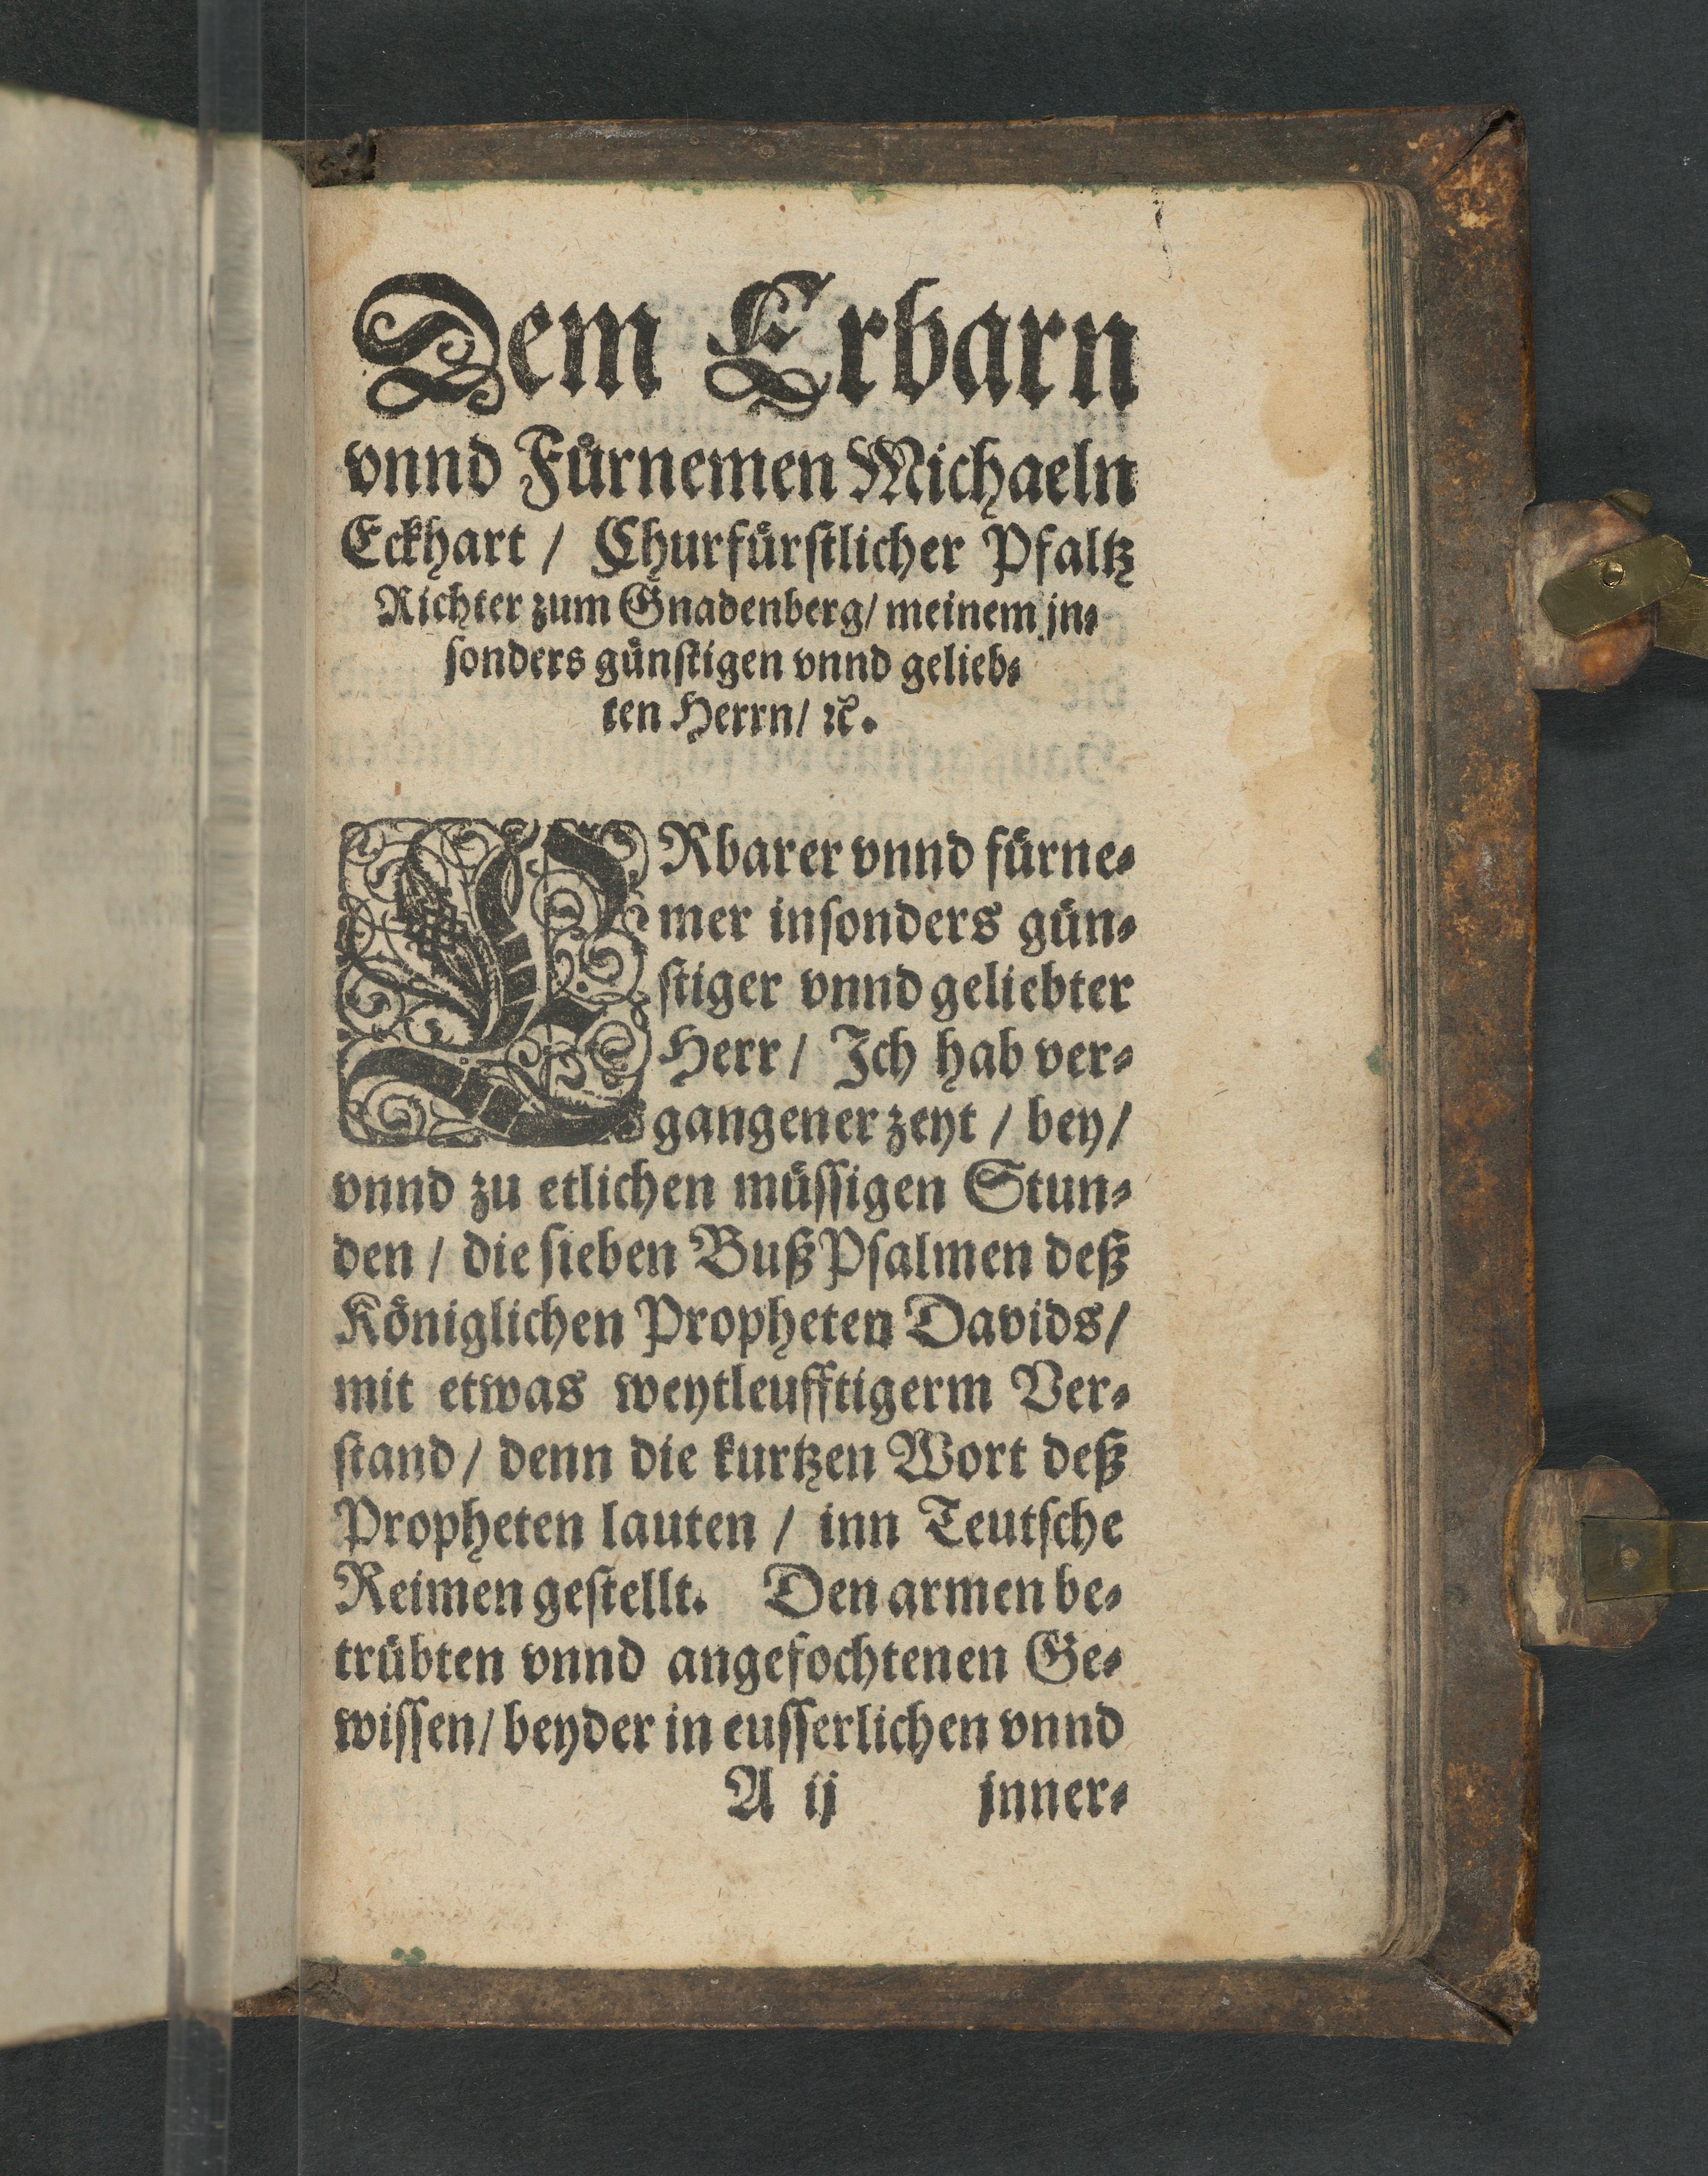 Dem Erbarn
vnnd Fuͤrnemen Michaeln
Eckhart / Churfuͤrſtlicher Pfaltz
Richter zum Gnadenberg/ meinem jn⸗
ſonders guͤnſtigen vnnd gelieb⸗
ten Herrn/ ꝛc.
ERbarer vnnd fuͤrne⸗
mer inſonders guͤn⸗
ſtiger vnnd geliebter
Herr / Ich hab ver⸗
gangener zeyt / bey /
vnnd zu etlichen muͤſſigen Stun⸗
den / die ſieben Buß Pſalmen deß
Koͤniglichen Propheten Davids /
mit etwas weytleufftigerm Ver⸗
ſtand / denn die kurtzen Wort deß
Propheten lauten / inn Teutſche
Reimen geſtellt. Den armen be⸗
truͤbten vnnd angefochtenen Ge⸗
wiſſen / beyder in euſſerlichen vnnd
A ij jnner⸗